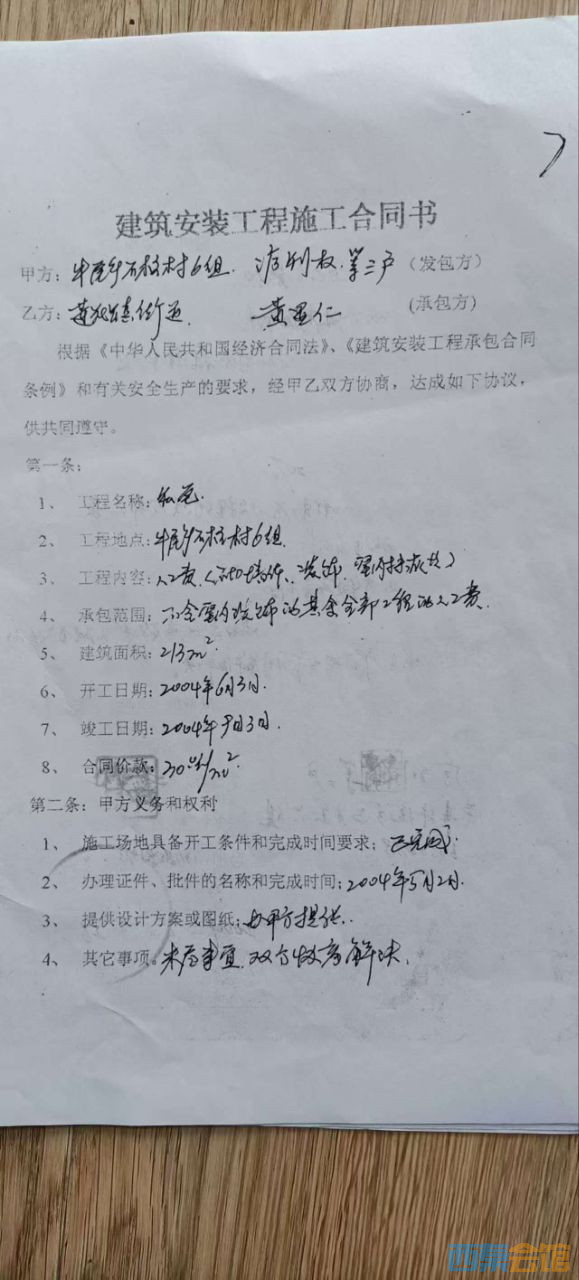 建筑安装工程施工合同书
甲方：牛尾乡石柱村6组. 等三户（发包方）
乙方： 黄星仁 （承包方）
根据《中华人民共和国经济合同法》、《建筑安装工程承包合同
条例》和有关安全生产的要求，经甲乙双方协商，达成如下协议，
供共同遵守。
第一条：
1、 工程名称：
2、 工程地点：牛尾乡石柱村6组.
3、 工程内容：人工费
4、 承包范围：不含室内 的其余全部工程的人工费.
5、 建筑面积：213m².
6、 开工日期：2004年6月3日.
7、 竣工日期：2004年9月3日.
8、 合同价款：30元/m².
第二条：甲方义务和权利
1、 施工场地具备开工条件和完成时间要求：已完成.
2、 办理证件、批件的名称和完成时间：2004年5月2日.
3、 提供设计方案或图纸：由甲方提供..
4、 其它事项。未尽事宜，双方 解决.
西泵会馆